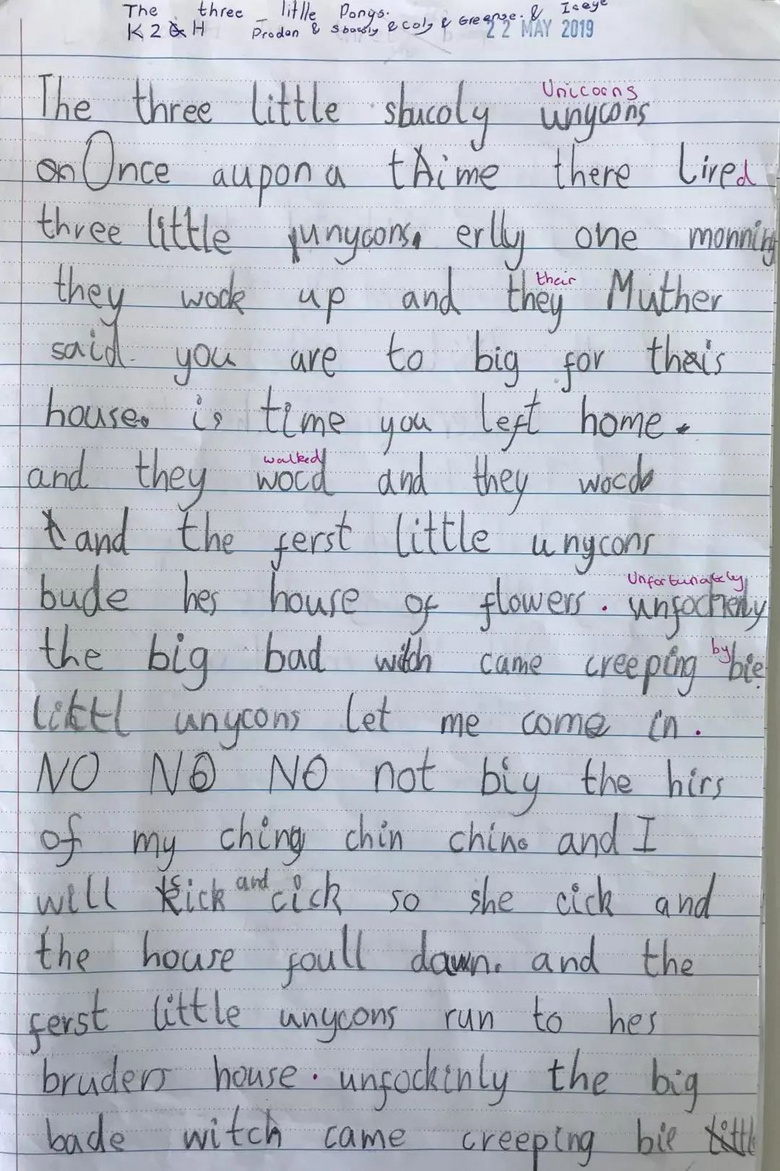 The three little Pongs.
K 2 & H Prodan & Sbucoly & Coly & Greanse & Iseye
22 MAY 2019
Unicoans
The three little sbucoly unycons
on Once aupon a tAime there lived
three little unycons. erlly one monning
their
they wock up and they Muther
said. you are to big for thais
house. is time you left home.
walked
and they wocd and they wocd
t and the ferst little unycons
Unfortunately
bude hes house of flowers. unfochenly
by
the big bad witch came creeping bie.
likttl unycons let me come in.
NO NO NO not biy the hirs
of my ching chin chin. and I
and
will kick cick so she cick and
the house foull dawn. and the
ferst little unycons run to hes
bruders house. unfockinly the big
bade witch came creeping bie little